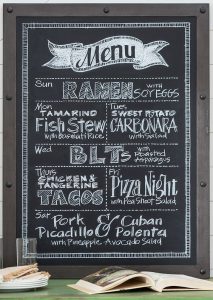 Menu
Sun RAMEN with SOY EGGS
Mon
TAMARIND
Fish Stew
with Basmati Rice
Tues
SWEET POTATO
CARBONARA
with Salad
Wed BLTs with Roasted Asparagus
Thurs
CHICKEN &
TANGERINE
TACOS
Fri
Pizza Night
with Pea Shoot Salad
Sat
Pork & Cuban
Picadillo Polenta
with Pineapple Avocado Salad